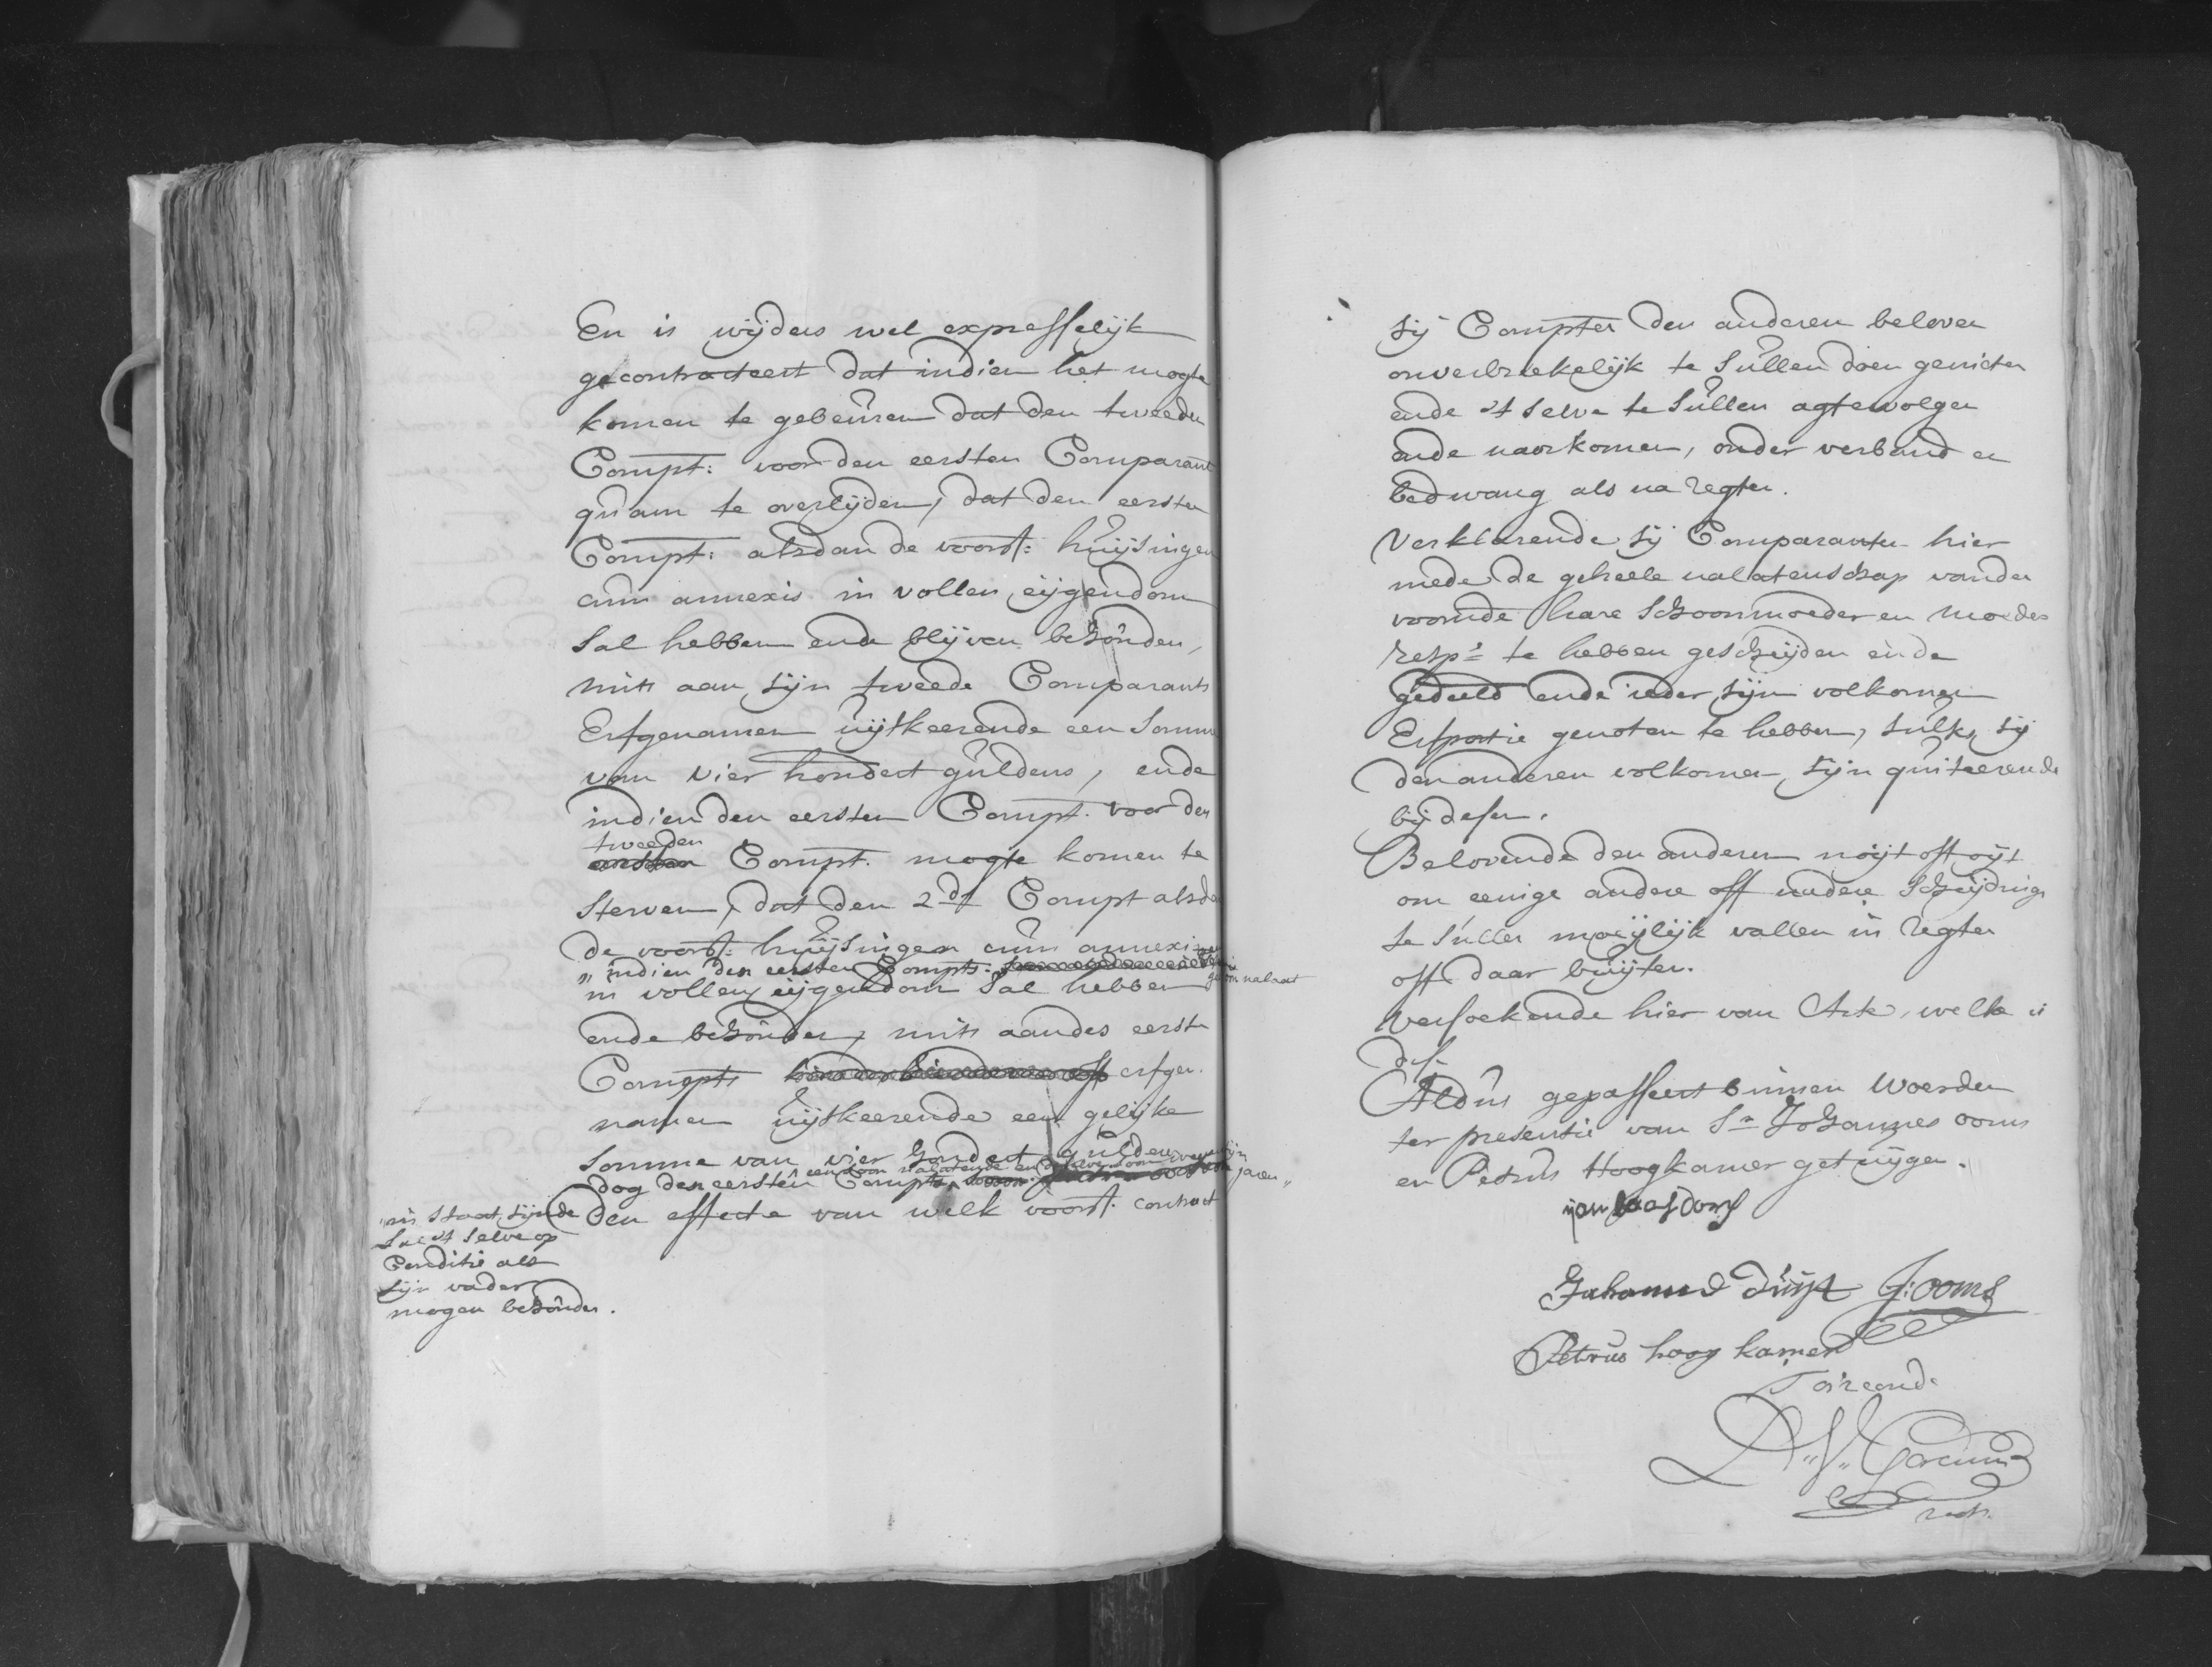 En is wijders wel expresselijk
gecontracteert dat indien het mogte
komen te gebeuren dat den tweeden
Compt: voor den eersten Comparant
quam te overlijden, dat den eersten
Compt: alsdan de voorsz: huijsingen
cum annexis in vollen eijgendom
sal hebben ende blijven behouden,
mits aan sijn tweede Comparants
Erfgenamen uijtkeerende een somme
van vier hondert guldens, ende
indien den eersten Compt. voor den
tweeden
eersten Compt. mogte komen te
sterven, dat den 2de Compt alsda
de voorsz: huijsingen cum annexis
" indien den eersten Compts: geen soon nalaat
in vollen eijgendom sal hebben
ende behouden, mits aan des eerste
Compts erfge-
namen uijtkeerende een gelijke
somme van vier hondert gulden
een soon nalatende en
dog den eersten Compt. jaren "
in staat sijnde
sal 't selve op
Conditie als
sijn vader
mogen behouden.
Den effecte van welk voorsz. contract
sij Compten den anderen beloven
onverbreekelijk te sullen doen genieten
ende 't selve te sullen agtervolgen
ende naarkomen, onder verband en
bedwang als na regten.
Verklarende sij Comparanten hier
mede de geheele nalatenschap van der
voornde hare schoonmoeder en moeder
resp: te hebben gescheijden ende
gedeeld ende ieder sijn volkomen
Erfportie genoten te hebben, sulks sij
den anderen volkomen sijn quiteerende
bij desen.
Belovende den anderen noijt oft oijt
om eenige andere off nadere scheijdinge
te sullen moeijlijk vallen in regten
off daar buijten.
Versoekende hier van Acte, welke is
des.
Aldus gepasseert binnen Woerden
ter presentie van Sr Johannes Ooms
en Petrus Hoogkamer getuijgen.
Johannes Duijst J: Ooms
Petrus hoog kamer